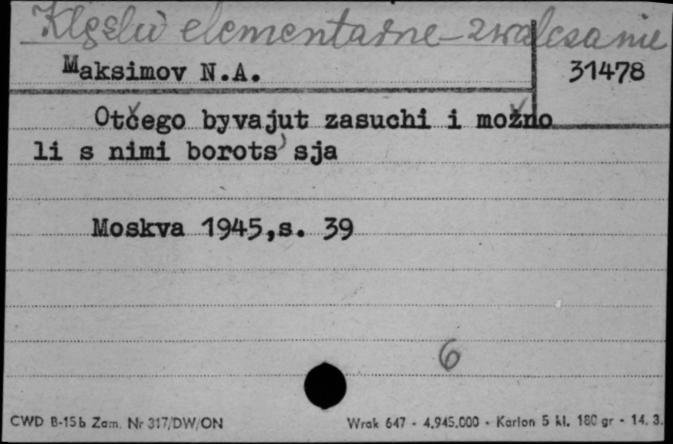 Klęski elementarne - zwalczanie
Maksimov N.A. 31478
Otčego byvajut zasuchi i možno
li s nimi borots'sja
Moskva 1945,s. 39
6
CWD B-15b Zam. Nr 317/DW/ON Wrak 647 - 4.945.000 - Karton 5 kl. 180 gr - 14. 3.